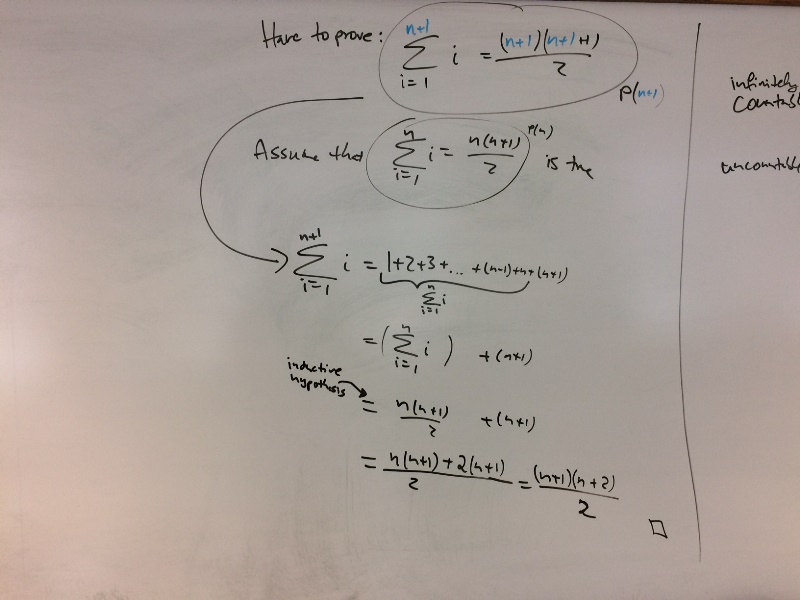 Have to prove: \sum_{i=1}^{n+1} i = \frac{(n+1)(n+1+1)}{2} P(n+1)
Assume that \sum_{i=1}^{n} i = \frac{n(n+1)}{2} P(n) is true
\sum_{i=1}^{n+1} i = 1+2+3+... +(n-1)+n+(n+1)
\sum_{i=1}^{n} i
= ( \sum_{i=1}^{n} i ) +(n+1)
inductive
hypothesis
= \frac{n(n+1)}{2} +(n+1)
= \frac{n(n+1)+2(n+1)}{2} = \frac{(n+1)(n+2)}{2}
□
infinitely
uncountable